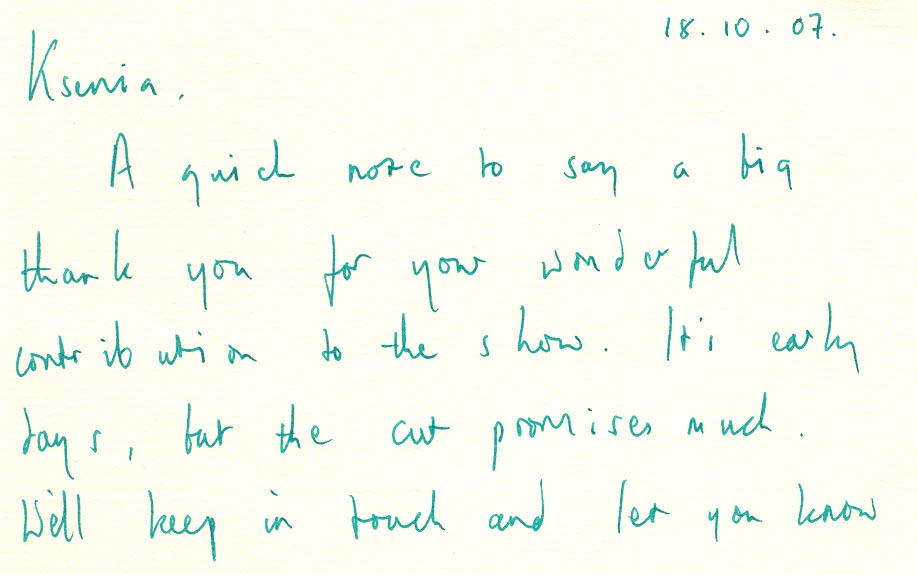 18.10.07.
Ksenia.
A quick note to say a big
thank you for your wonderful
contribution to the show. It's early
days, but the cut promises much.
We'll keep in touch and let you know